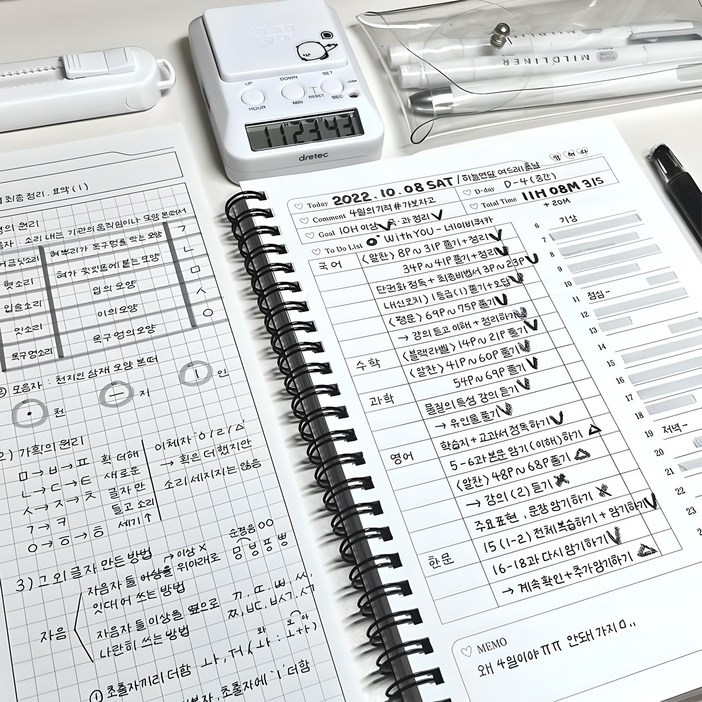 UP
DOWN
SET
HOUR
MIN
RESET
SEC
11:23:43
dretec
MILDLINER
MILDLINER
최종정리. 요약 (1)
ㄱ
ㄴ
ㅁ
ㅅ
ㅇ
혀뿌리가 목구멍을 막는 모양
혀가 윗잇몸에 붙는 모양
혓소리
입의 모양
입술소리
이의 모양
잇소리
목구멍의 모양
목구멍소리
모음자 : 천지인 삼재 모양 본떠
천 지 인
2) 가획의 원리
ㅁ→ㅂ→ㅍ
ㄴ→ㄷ→ㅌ
ㅅ→ㅈ→ㅊ
ㄱ→ㅋ
ㅇ→ㆆ→ㅎ
획 더해
새로운
글자 만
들고 소리
세기↑
이체자 ㆁ/ㄹ/ㅿ
→ 획은 더했지만
소리 세지지는 않음
3) 그 외 글자 만든 방법
순경음 ㅇㅇ
자음
자음자 둘 이상을 위아래로
→이상 X
잇대어 쓰는 방법
ㅱ ㅸ ㆄ ㅹ
자음자 둘 이상을 옆으로
나란히 쓰는 방법
ㄲ, ㄸ, ㅃ, ㅆ,
① 초출자끼리 더함
Today 2022.10.08 SAT
D-day D-4 (중간)
Comment 4일의 기적 #가보자고
Total Time 11H 08M 31S
+ 20M
Goal 10H 이상 과 정리 ✓
To Do List WithYOU - 네이비쿼카
국어 <알찬> 8P~31P 풀기+정리 ✓
34P~41P 풀기+정리 ✓
단권화 정독 + 최종비법서 3P~23P ✓
내신코치) 1등급 (1) 풀기+오답 ✓
<평문> 69P~75P 풀기 ✓
→ 강의 듣고 이해+정리하기 ✓
수학 <블랙라벨> 14P~21P 풀기 ✓
<알찬> 41P~60P 풀기 ✓
54P~69P 풀기 ✓
과학 물질의 특성 강의 듣기 ✓
→ 유인물 풀기 ✓
학습지+교과서 정독하기 ✓
영어 5-6과 본문 암기(이해)하기 △
<알찬> 48P~68P 풀기 △
→ 강의 (2) 듣기 ✗
주요표현, 문장 암기하기 ✗
한문 15 (1-2) 전체 복습하기 + 암기하기 ✓
16-18과 다시 암기하기 ✓
→ 계속 확인+추가 암기하기 △
6 기상
7
8
9
10
11 점심-
12
13
14
15
16
17
18
19 저녁-
20
21
22
23
MEMO
왜 4일이야 ㅠㅠ 안돼 가지 마..